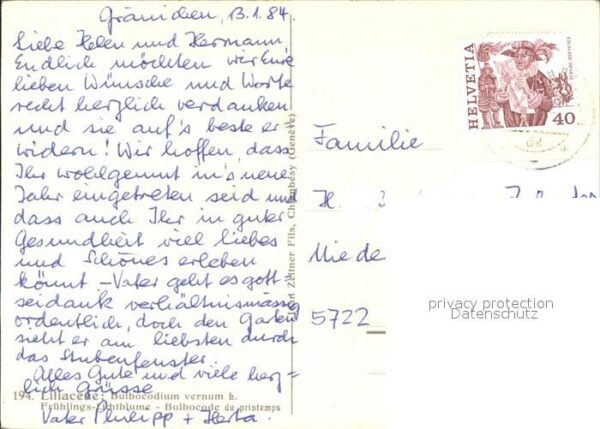 Gränichen, 13.1.84.
Liebe Helen und Hermann
Endlich möchten wir Eure
lieben Wünsche und Worte
recht herzlich verdanken
und sie auf's beste er
widern! Wir hoffen, dass
Ihr wohlgemut in's neue
Jahr eingetreten seid und
dass auch Ihr in guter
Gesundheit viel liebes
und Schönes erleben
könnt – Vater geht es gott=
seidank verhältnismässig
ordentlich, doch den Garten
sieht er am liebsten durch
das Stubenfenster.
Alles Gute und viele herz=
lich Grüsse
Vater Philipp + Herta.
194. Liliaceae: Bulbocodium vernum h.
Frühlings-Lichtblume - Bulbocode du printemps
Zeltner Fils, Chambésy (Genève)
HELVETIA
ESCALADE GENÈVE
40
Familie
H.
Niede
5722
privacy protection
Datenschutz